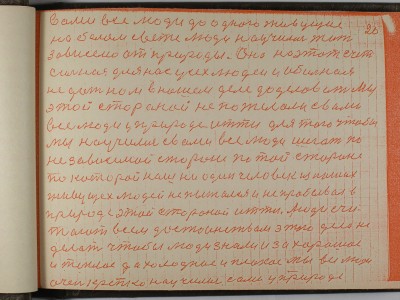 вами все люди до одного живущие 20
на белом свете люди научились жит
зависемо от природы. Оно на этот счет
для нас усех людей и
не в нашем деле доделов
этой стороной не пожелали с вами
все люди у природе итти для того чтобы
мы научились вами все люди шагат по
не зависемой стороне по той стороне
по которой наш ни один человек из наших
живущих людей не пытался и не пробовал в
природе этой стороной итти. Люди
всем достоинствам этого дела не
делат чтобы люди знали и за хорошое
и теплое да холодное и плохое мы все люди
очен крепко научилис сами у природе